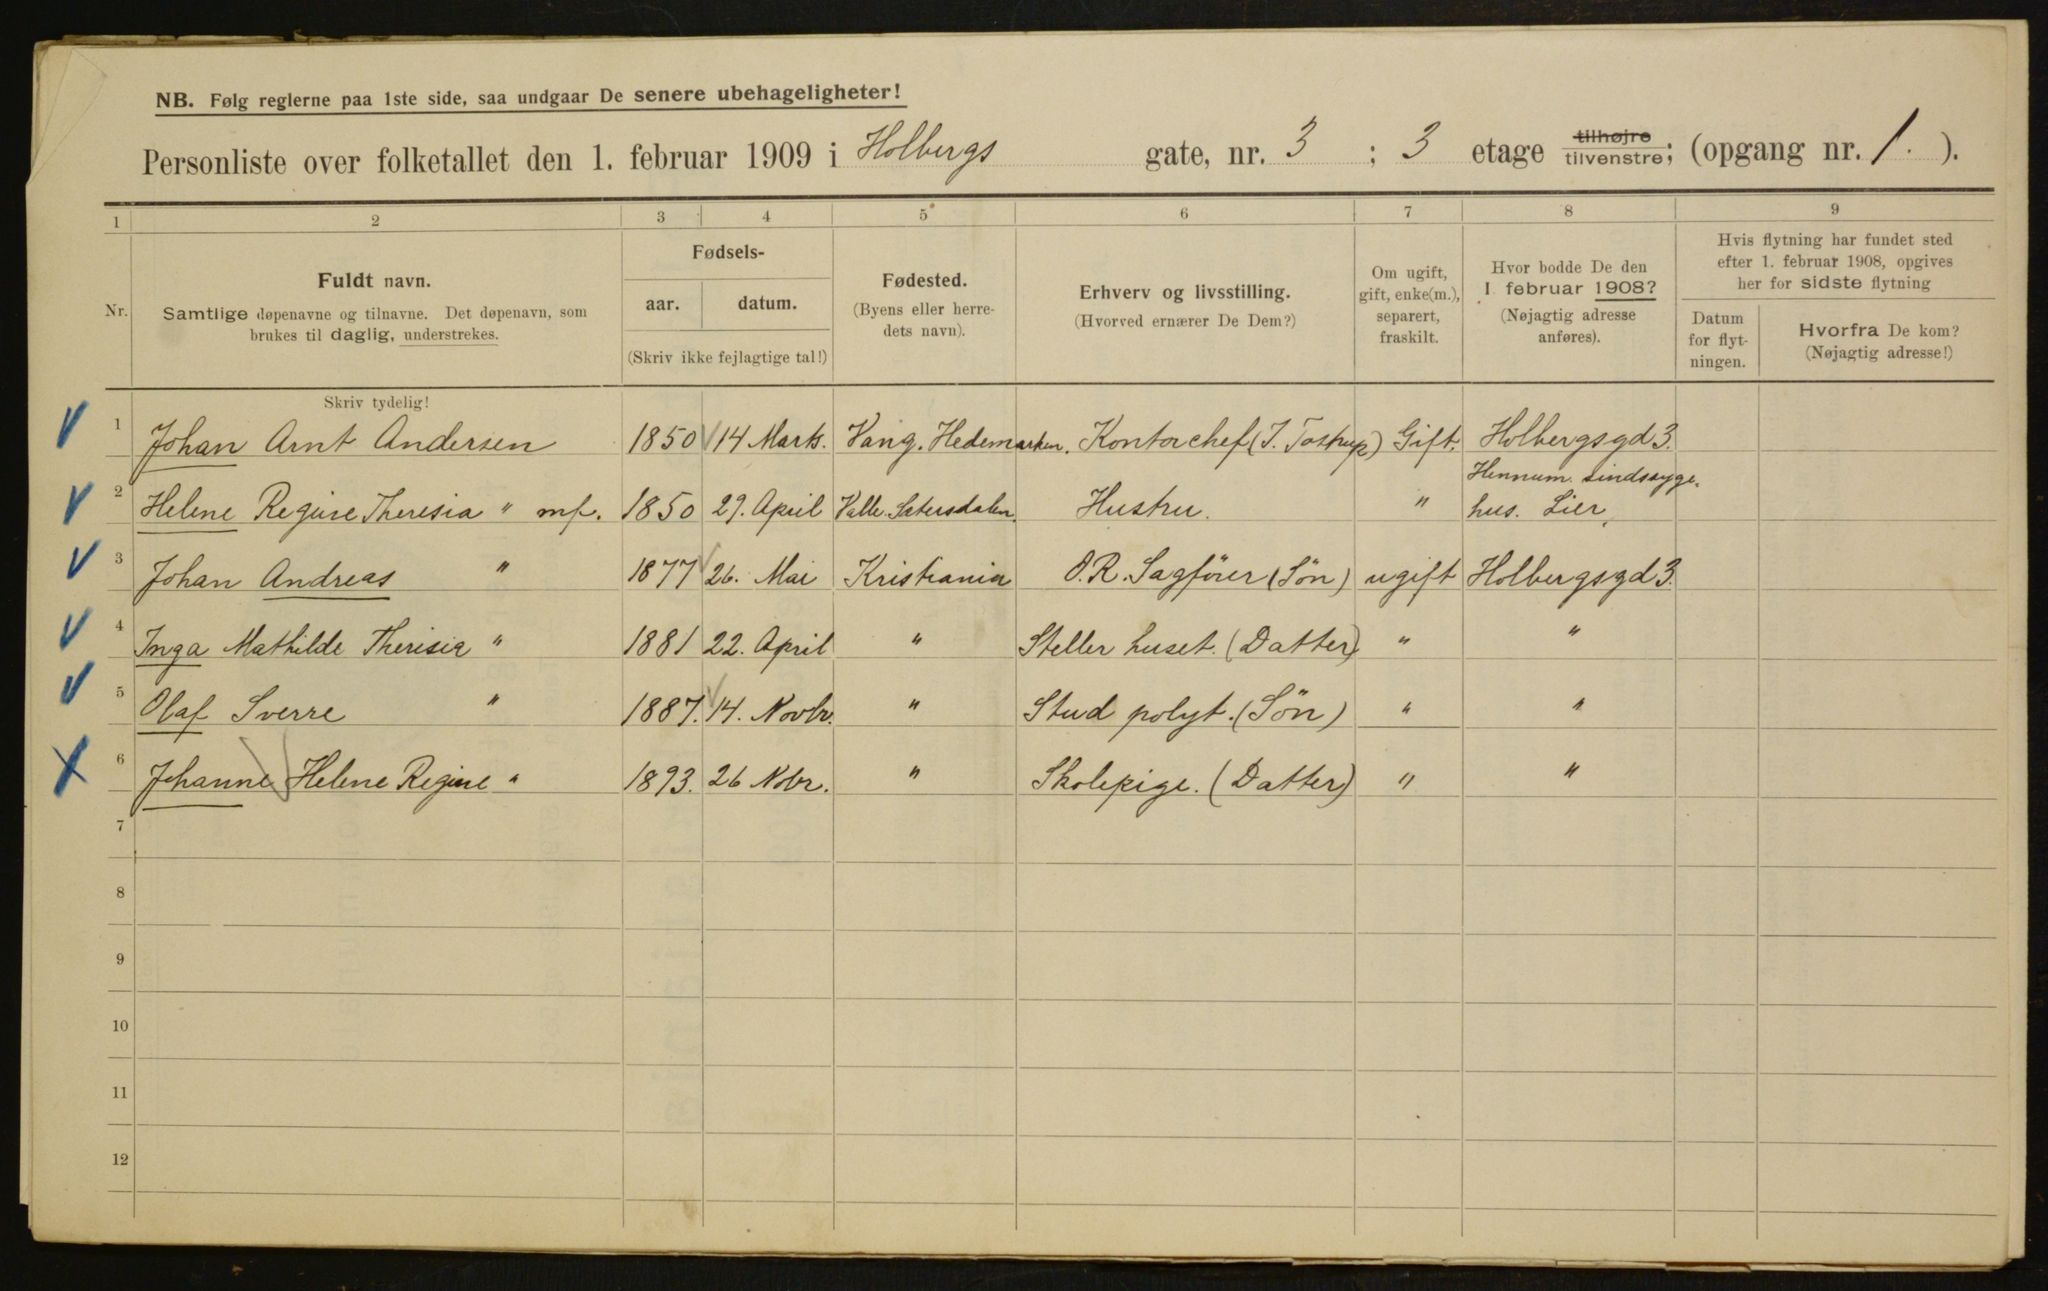 NB. Følg reglerne paa 1ste side, saa undgaar De senere ubehageligheter!
Personliste over folketallet den 1. februar 1909 i Holbergs gate, nr. 3 ; 3 etage tilhøjre tilvenstre; (opgang nr. 1. ).
1 2 3 4 5 6 7 8 9
Nr.
Fuldt navn.
Samtlige døpenavne og tilnavne. Det døpenavn, som
brukes til daglig, understrekes.
Fødsels-
aar. datum.
(Skriv ikke fejlagtige tal!)
Fødested.
(Byens eller herre-
dets navn).
Erhverv og livsstilling.
(Hvorved ernærer De Dem?)
Om ugift,
gift, enke(m.),
separert,
fraskilt.
Hvor bodde De den
1 februar 1908?
(Nøjagtig adresse
anføres).
Hvis flytning har fundet sted
efter 1. februar 1908, opgives
her for sidste flytning
Datum
for flyt-
ningen.
Hvorfra De kom?
(Nøjagtig adresse!)
Skriv tydelig!
1 Johan Arnt Andersen 1850 14 Marts. Vang. Hedemarken. Kontorchef (J. Tostrup) Gift. Holbergsgd 3.
2 Helene Regine Theresia " mf. 1850 29. April Valle. Sætersdalen. Hustru. " Hennum sindssyge-
hus. Lier.
3 Johan Andreas " 1877 26. Mai Kristiania O.R. Sagfører (Søn) ugift Holbergsgd 3.
4 Inga Mathilde Therisia " 1881 22. April " Steller huset. (Datter) " "
5 Olaf Sverre " 1887. 14. Novbr. " Stud polyt. (Søn) " "
6 Johanne Helene Regine " 1893. 26 Nobr. " Skolepige. (Datter) " "
7
8
9
10
11
12